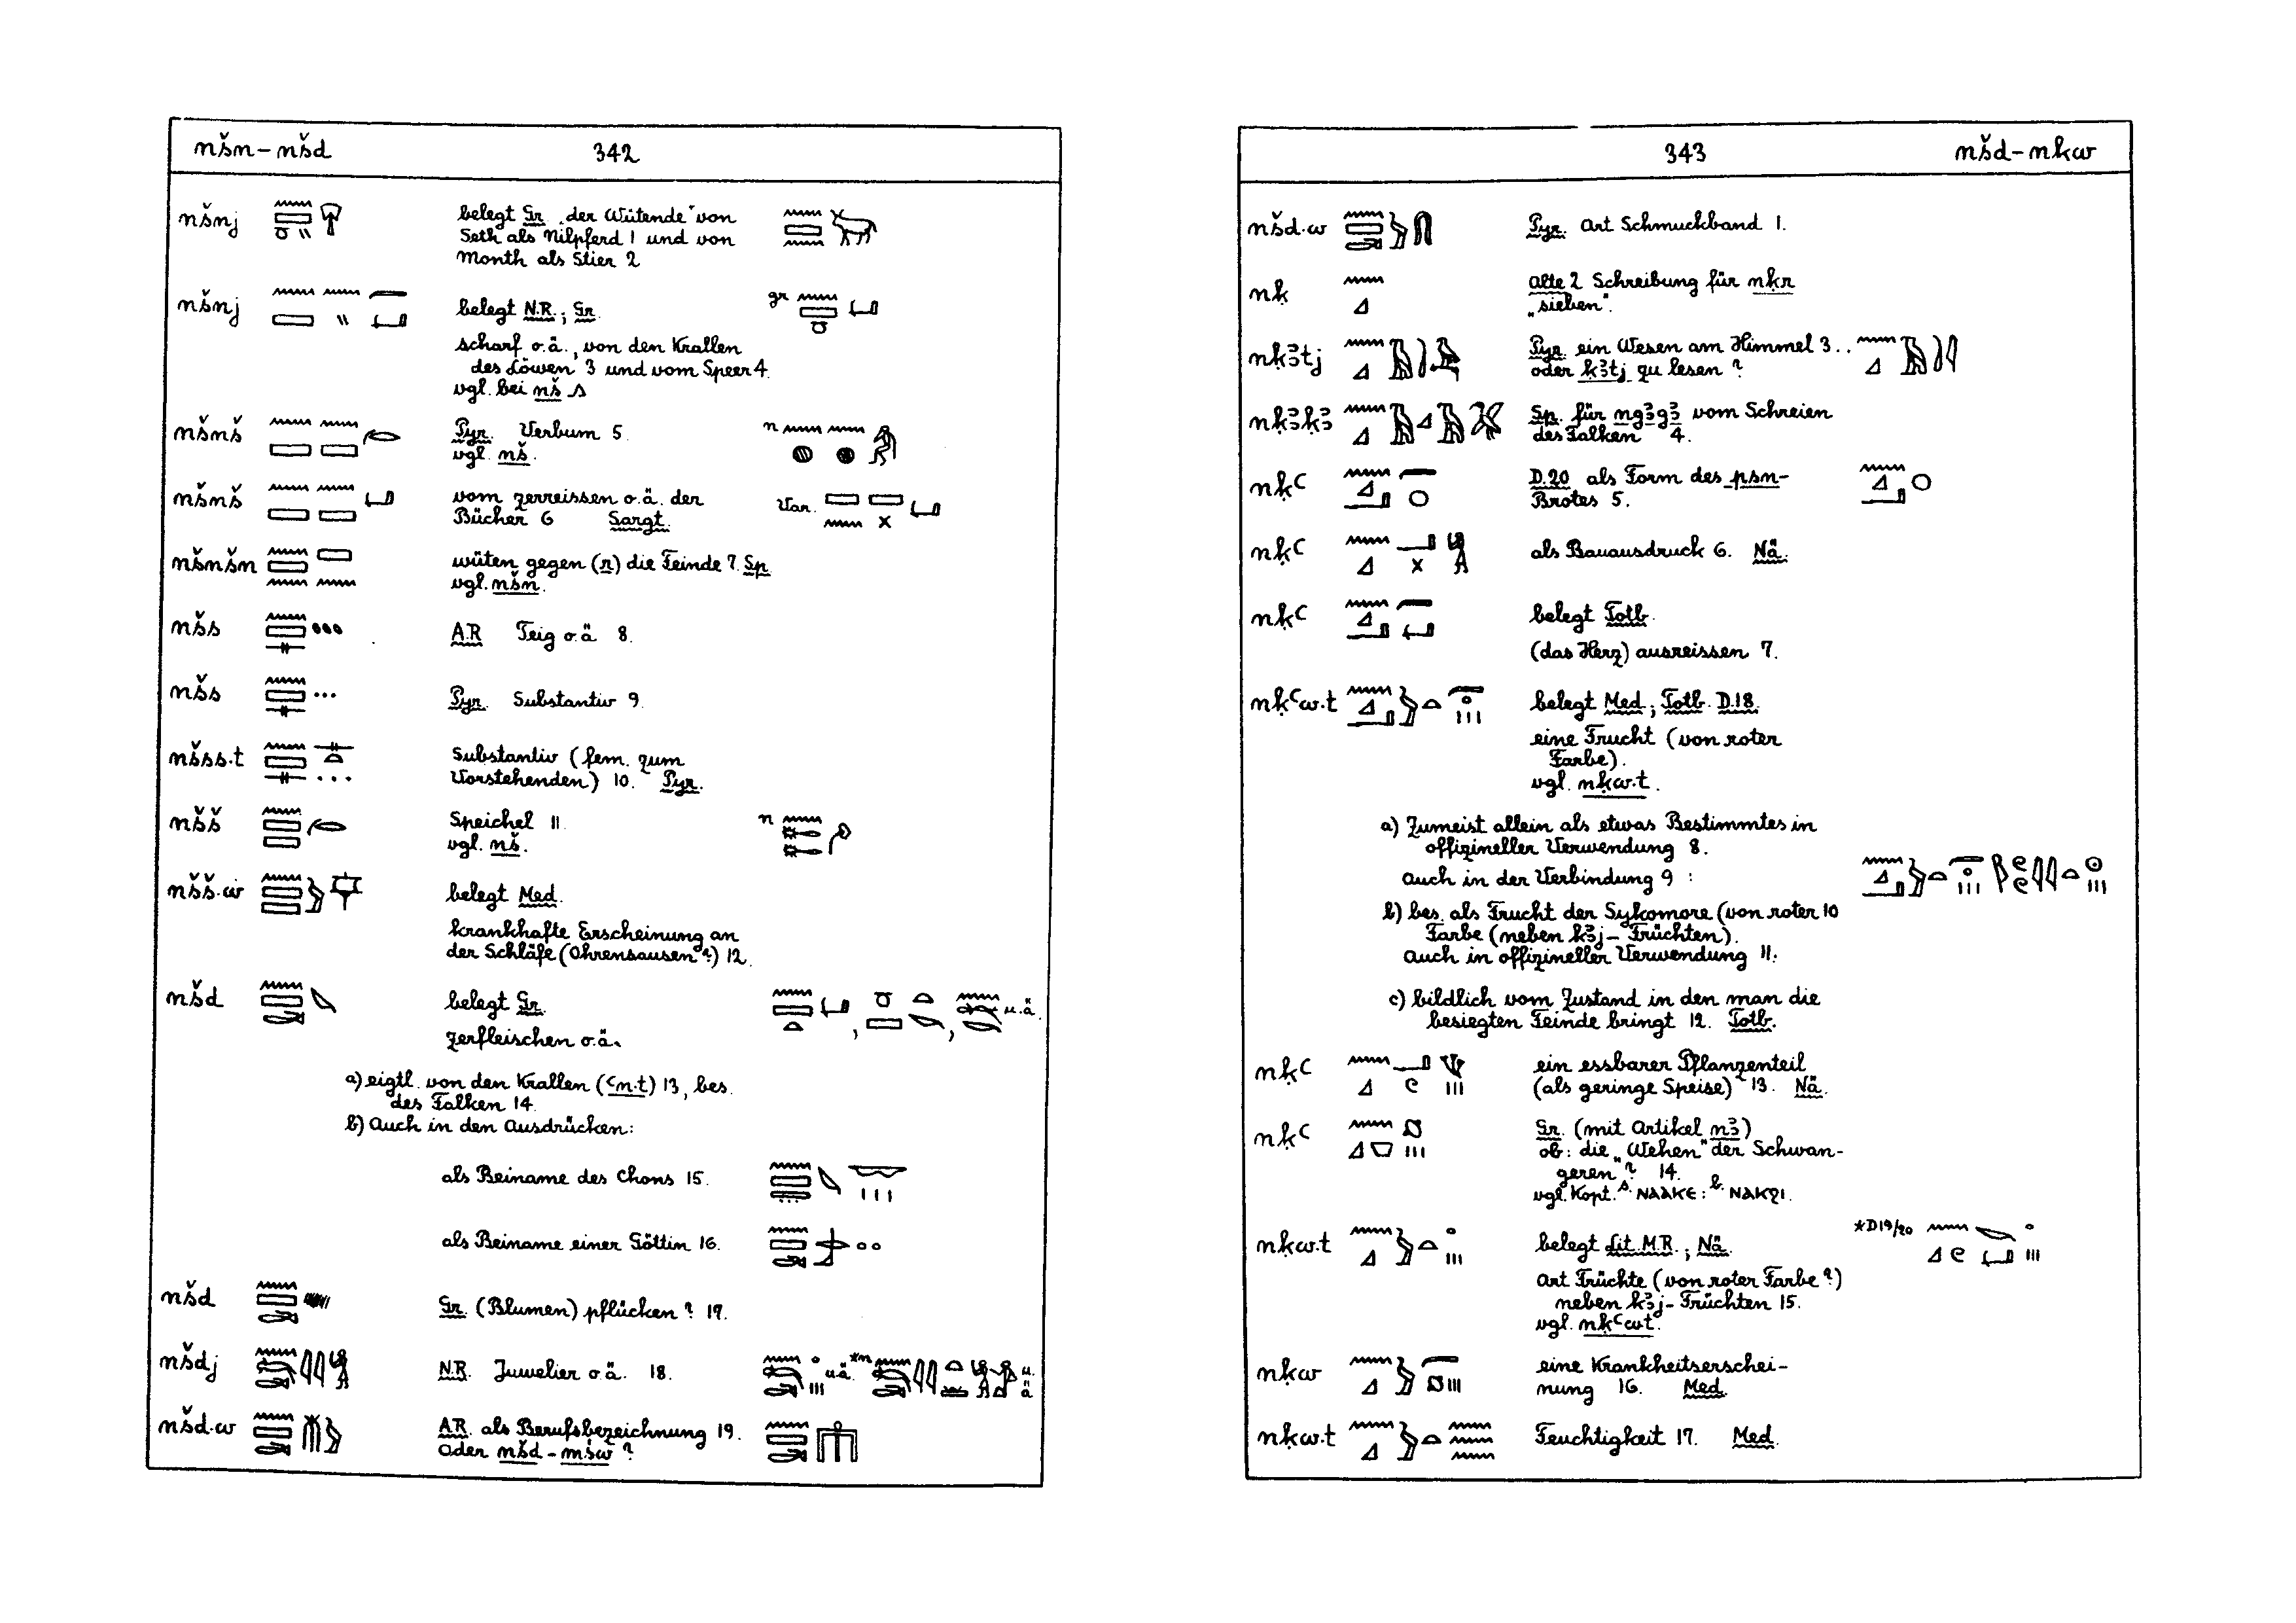 nšn – nšd 342
nšnj belegt Gr. „der Wütende" von
Seth als Nilpferd 1 und von
Month als Stier 2
nšnj belegt N.R.; Gr. gr
scharf o.ä., von den Krallen
des Löwen 3 und vom Speer 4.
vgl. bei nš
nšnš Pyr. Verbum 5. n
vgl. nš.
nšnš vom zerreissen o.ä. der Var.
Bücher 6 Sargt.
nšnšn wüten gegen (r) die Feinde 7. Sp.
vgl. nšn.
nšs A.R. Teig o.ä. 8.
nšs Pyr. Substantiv 9.
nšss.t Substantiv (fem. zum
Vorstehenden) 10. Pyr.
nšš Speichel 11. n
vgl. nš.
nšš.w belegt Med.
krankhafte Erscheinung an
der Schläfe (Ohrensausen?) 12.
nšd belegt Gr. , , u.ä.
zerfleischen o.ä.
a) eigtl. von den Krallen (ꜥn.t) 13, bes.
des Falken 14.
b) Auch in den Ausdrücken:
als Beiname des Chons 15.
als Beiname einer Göttin 16.
nšd Gr. (Blumen) pflücken? 17.
nšdj N.R. Juwelier o.ä. 18. u.ä. *m u.ä
nšd.w A.R. als Berufsbezeichnung 19.
Oder nšd – mśw?
343 nšd – nḳw
nšd.w Pyr. Art Schmuckband 1.
nḳ alte 2 Schreibung für nḳr
„sieben".
nḳꜣtj Pyr. ein Wesen am Himmel 3..
oder ḳꜣtj zu lesen?
nḳꜣḳꜣ Sp. für ngꜣgꜣ vom Schreien
des Falken 4.
nḳꜥ D.20 als Form des psn-
Brotes 5.
nḳꜥ als Bauausdruck 6. Nä.
nḳꜥ belegt Totb.
(das Herz) ausreissen 7.
nḳꜥw.t belegt Med.; Totb. D.18.
eine Frucht (von roter
Farbe).
vgl. nḳw.t.
a) Zumeist allein als etwas Bestimmtes in
offizineller Verwendung 8.
auch in der Verbindung 9 :
b) bes. als Frucht der Sykomore (von roter 10
Farbe (neben kꜣj – Früchten).
auch in offizineller Verwendung 11.
c) bildlich vom Zustand in den man die
besiegten Feinde bringt 12. Totb.
nḳꜥ ein essbarer Pflanzenteil
(als geringe Speise) 13. Nä.
nḳꜥ Gr. (mit Artikel nꜣ)
ob: die „Wehen" der Schwan-
geren? 14.
vgl. Kopt. S. ⲛⲁⲁⲕⲉ: b. ⲛⲁⲕϩⲓ.
nḳw.t belegt Lit. M.R.; Nä. *D19/20
Art Früchte (von roter Farbe?)
neben kꜣj – Früchten 15.
vgl. nḳꜥwt.
nḳw eine Krankheitserschei-
nung 16. Med.
nḳw.t Feuchtigkeit 17. Med.